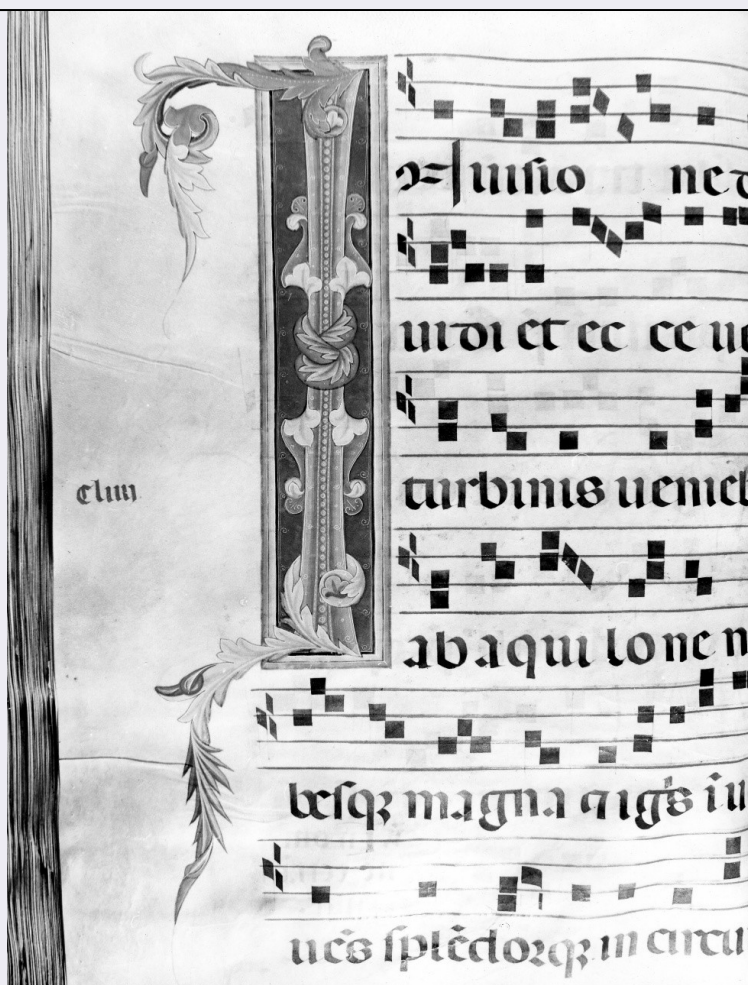 IN uisio ne d
uidi et ec ce ue
turbinis uenieb
Cliiii
ab aqui lone n
besqꝫ magna et igs̄ īu
uēs splēdorqꝫ in circu